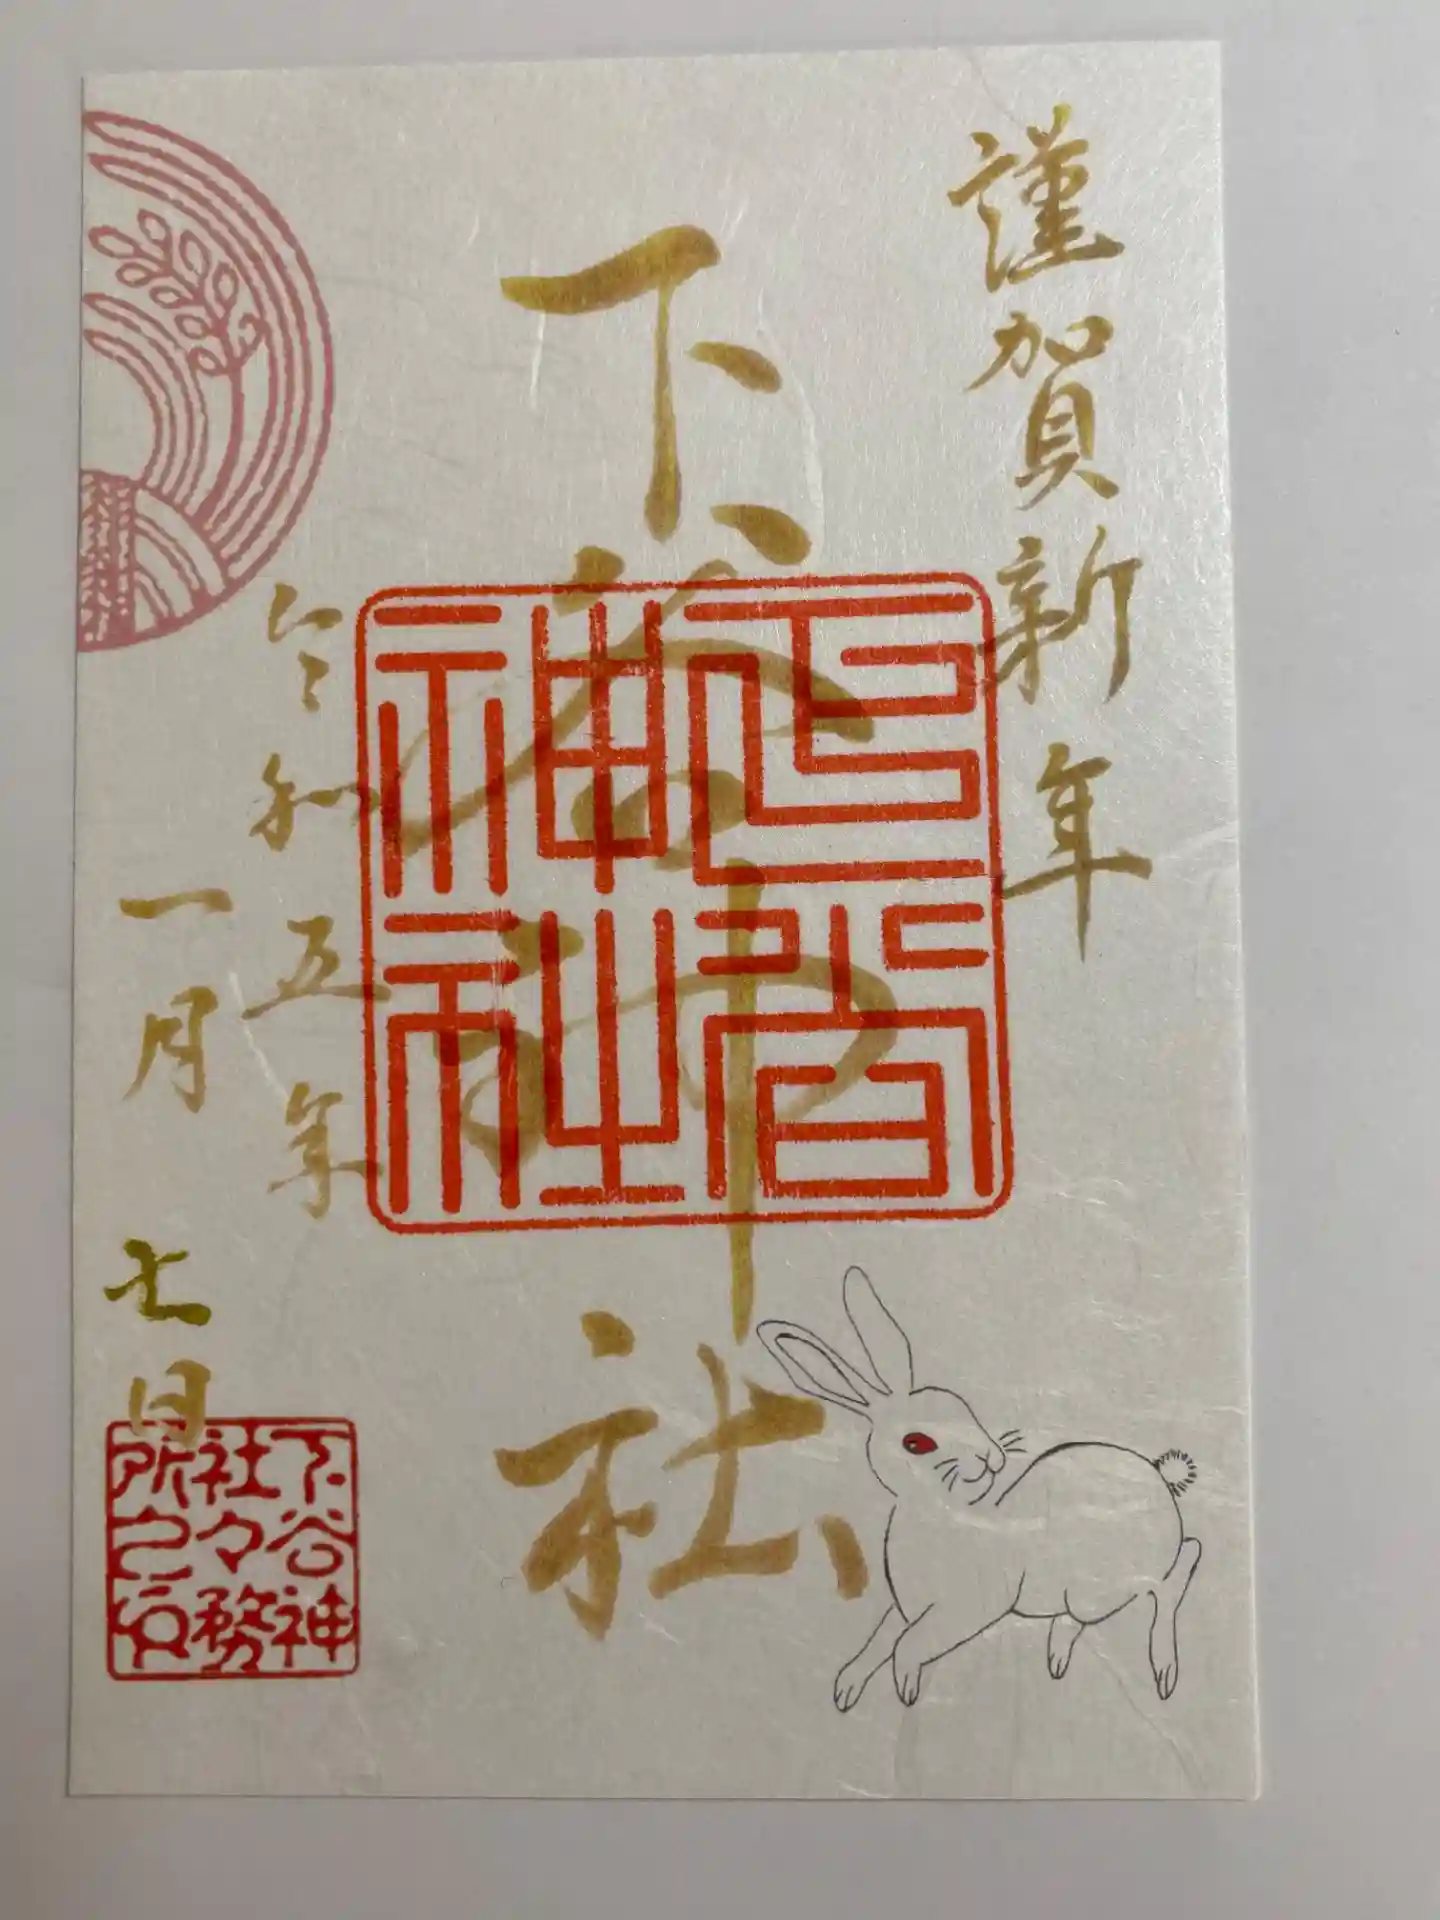 謹賀新年
下谷神社
下谷
神社
令和五年
一月七日
下谷神
社々務
所之印